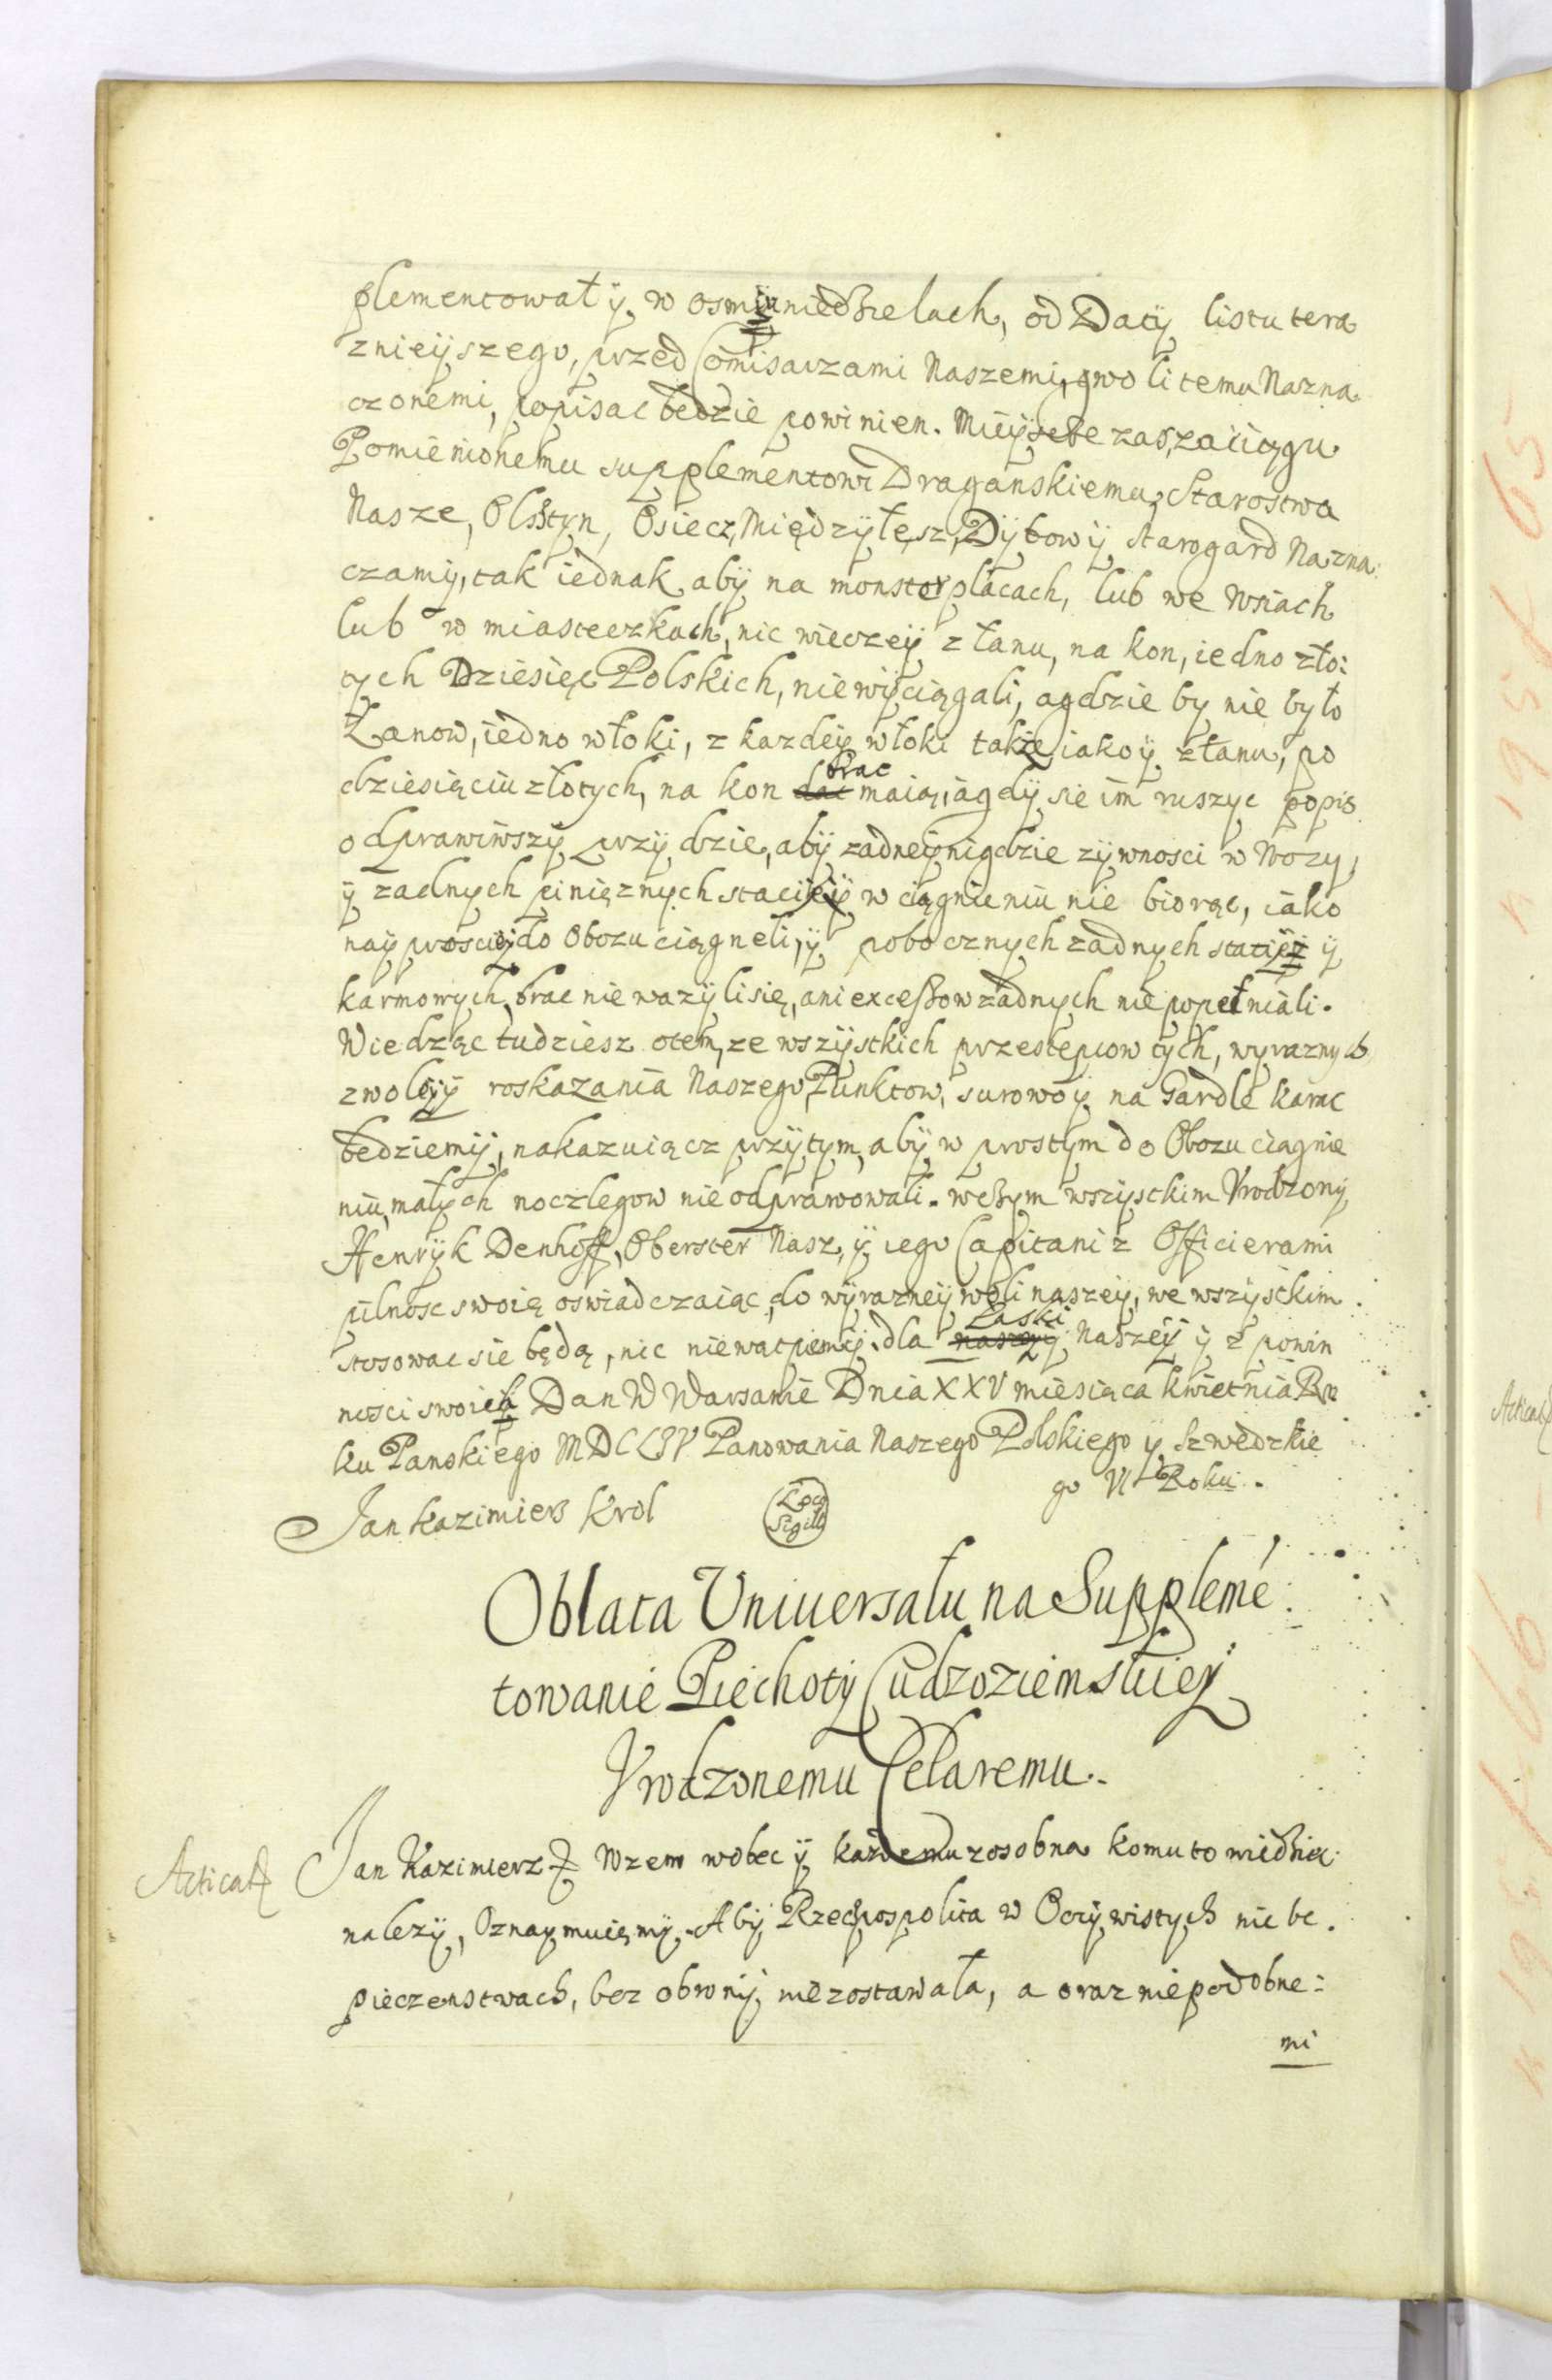 plementowat ÿ w osmiu niedzielach, od Datÿ listu tera
znieÿszego, przed Comisarzami Naszemi, gwoli temu Nazna
czonemi, popisac bedzie powinien. Mieÿsce zas zaciągu
Pomienionemu supplementowi Draganskiemu, Starostwa
Nasze, Olsztyn, Osiecz, Międzyłęsz, Dÿbow ÿ Starogard Nazna:
czamÿ, tak iednak abÿ na monsterplacach, lub we wsiach
lub w miasteczkach, nic wieczeÿ z łanu, na kon, iedno zło:
tych Dziesięc Polskich, nie wÿciągali, a gdzie by nie było
Łanow, iedno włoki, z kazdeÿ włoki także iako ÿ z łanu, po
dziesiąciu złotych, na kon dac brac maią, a gdÿ sie im ruszyc popis
odprawiwszÿ przÿdzie, abÿ zadneÿ nigdzie zÿwnosci w Wozy,
ÿ zadnych pinięznych staciÿ w ciągnieniu nie biorąc, iako
naÿprosciey do Obozu ciągneli, ÿ pobocznych zadnych staciÿ ÿ
karmowych, brac nie wazÿli się, ani excessow zadnych nie popełniali.
Wiedząc tudziesz otem, ze wszÿstkich przestepcow tÿch, wyraznych
z woleÿ ÿ roskazania Naszego Punktow, surowo ÿ na Gardle karac
bedziemÿ, nakazuiącz przÿtym, abÿ w prostÿm do Obozu ciagnie
niu, małych noczlegow nie odprawowali. We wszÿstkim Vrodzonÿ
Henrÿk Denhoff, Oberster Nasz, ÿ iego Capitani z Officierami
pilnosc swoią oswiadczaiąc, do wÿrazneÿ woli naszeÿ, we wszÿstkim
stosowac sie będą, nic niewątpiemÿ, dla naszeÿ Łaski Naszeÿ ÿ z powin
nosci swoich Dan W Warsawie Dnia XXV miesiąca kwietnia Ro
ku Panskiego MDCLIV Panowania Naszego Polskiego ÿ Szwedzkie
go VI Roku.
Jan Kazimierz Krol
Loco
Sigilli
Oblata Vniuersału na Supplemé:
towanie Piechotÿ Cudzoziemskieÿ
Vrodzonemu Celaremu.
Acticat
Jan Kazimierz Wzem wobec ÿ każdemu zosobna komu to wiedziec
nalezÿ, Oznaymuięmÿ. Abÿ Rzechpospolita w Oczÿwistych niebe.
pieczenstwach, bez obronÿ nie zostawała, a oraz niepodobne:
mi